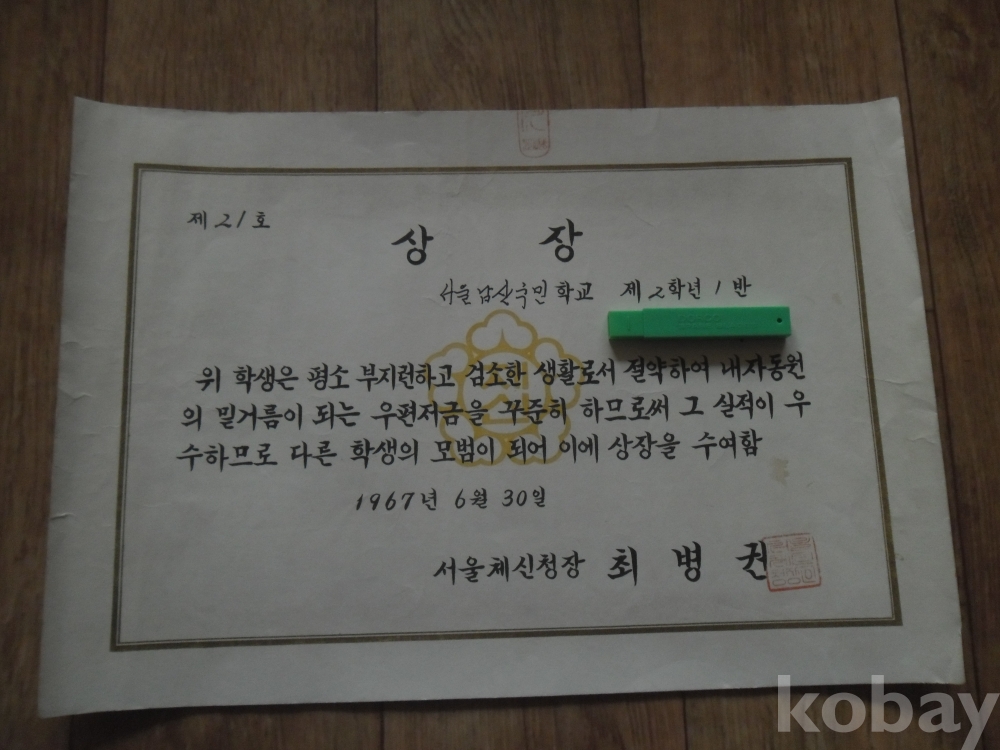 제 21 호
상 장
서울남산국민학교 제 2 학년 1 반
위 학생은 평소 부지런하고 검소한 생활로서 절약하여 내자동원
의 밑거름이 되는 우편저금을 꾸준히 하므로써 그 실적이 우
수하므로 다른 학생의 모범이 되어 이에 상장을 수여함
1967년 6월 30일
서울체신청장 최 병 권
kobay